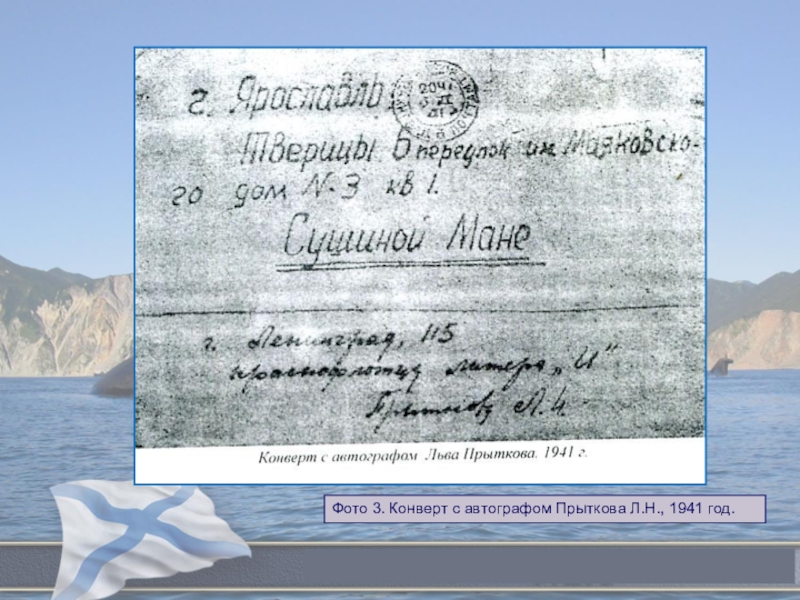 г. Ярославль
Тверицы 6 переулок им Маяковско-
го дом N-3 кв 1.
Сушиной Мане
г. Ленинград, 115
краснофлотцу литера „И"
Прыткову Л.Н.
Конверт с автографом Льва Прыткова. 1941 г.
Фото 3. Конверт с автографом Прыткова Л.Н., 1941 год.